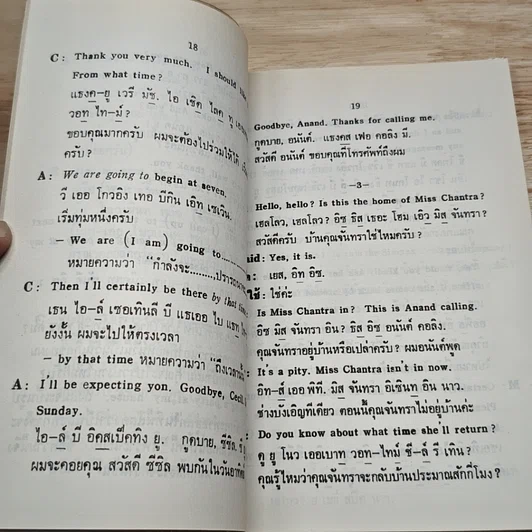 18
C: Thank you very much. I should like
From what time?
แธงค-ยู เวรี มัช. ไอ เชิด ไลค ทู
วอท ไทม์?
ขอบคุณมากครับ ผมจะต้องไปร่วมให้ได้
ครับ?
A: We are going to begin at seven.
วี เออ โกวอิง เทอ บีกิน เอ็ท เซเว็น.
เริ่มทุ่มหนึ่งครับ
– We are (I am) going to........
หมายความว่า "กำลังจะ........
C: Then I'll certainly be there by that time.
เธน ไอ-ล์ เซอเทินลี บี แธเออ ไบ แธท
ยังงั้น ผมจะไปให้ตรงเวลา
– by that time หมายความว่า "ถึงเวลานั้น
A: I'll be expecting you. Goodbye, Cecil.
Sunday.
ไอ-ล์ บี อิคสเป็คทิง ยู. กูดบาย, ซีซิล.
ผมจะคอยคุณ สวัสดี ซีซิล พบกันในวันอาทิตย์
19
Goodbye, Anand. Thanks for calling me.
กูดบาย, อนันต์. แธงคส เฟอ คอลิง มี.
สวัสดี อนันต์ ขอบคุณที่โทรศัพท์ถึงผม
–3–
Hello, hello? Is this the home of Miss Chantra?
เฮลโลว, เฮลโลว? อิซ ธิส เธอะ โฮม เอิว มิส จันทรา?
สวัสดีครับ บ้านคุณจันทราใช่ไหมครับ?
aid: Yes, it is.
เยส, อิท อิซ.
ใช้: ใช่ค่ะ
Is Miss Chantra in? This is Anand calling.
อิซ มิส จันทรา อิน? ธิส อิซ อนันต์ คอลิง.
คุณจันทราอยู่บ้านหรือเปล่าครับ? ผมอนันต์พูด
It's a pity. Miss Chantra isn't in now.
อิท-ส์ เออ พิที. มิส จันทรา อิเซินท อิน นาว.
ช่างบังเอิญทีเดียว ตอนนี้คุณจันทราไม่อยู่บ้านค่ะ
Do you know about what time she'll return?
ดู ยู โนว เออเบาท วอท-ไทม์ ชี-ล์ รี เทิน?
คุณรู้ไหมว่าคุณจันทราจะกลับบ้านประมาณสักกี่โมง?